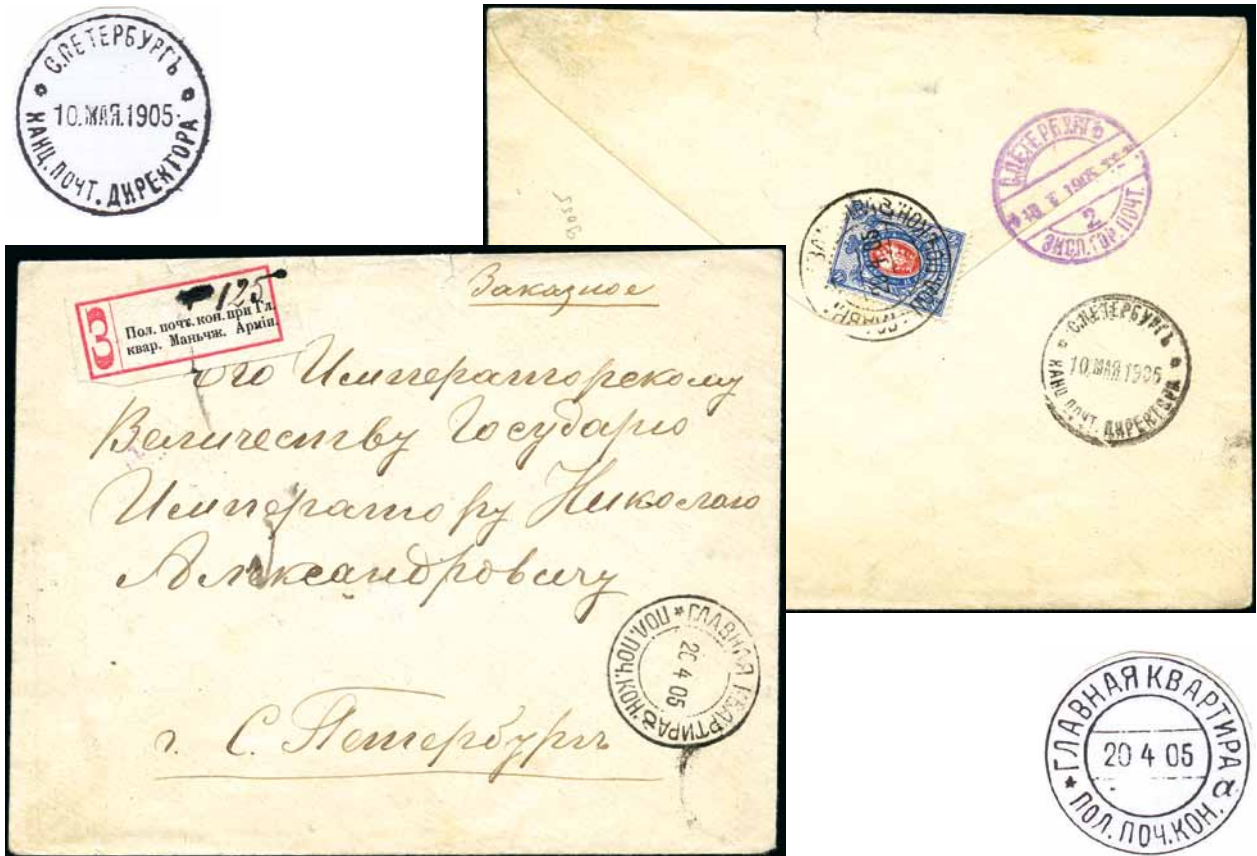 С.ПЕТЕРБУРГЪ
10.МАЯ.1905
КАНЦ.ПОЧТ.ДИРЕКТОРА
С.ПЕТЕРБУРГЪ
1905
2
ЭКСП.ГОР.ПОЧТ.
С.ПЕТЕРБУРГЪ
10.МАЯ.1905
КАНЦ.ПОЧТ.ДИРЕКТОРА
125
Заказное
З
Пол. почт. кон. при Гл.
квар. Маньчж. Арміи.
Его Императорскому
Величеству Государю
Императору Николаю
Александровичу
г. С. Петербургъ
ГЛАВНАЯ КВАРТИРА
20 4 05
ПОЛ.ПОЧ.КОН.
ГЛАВНАЯ КВАРТИРА
20 4 05
ПОЛ.ПОЧ.КОН. а